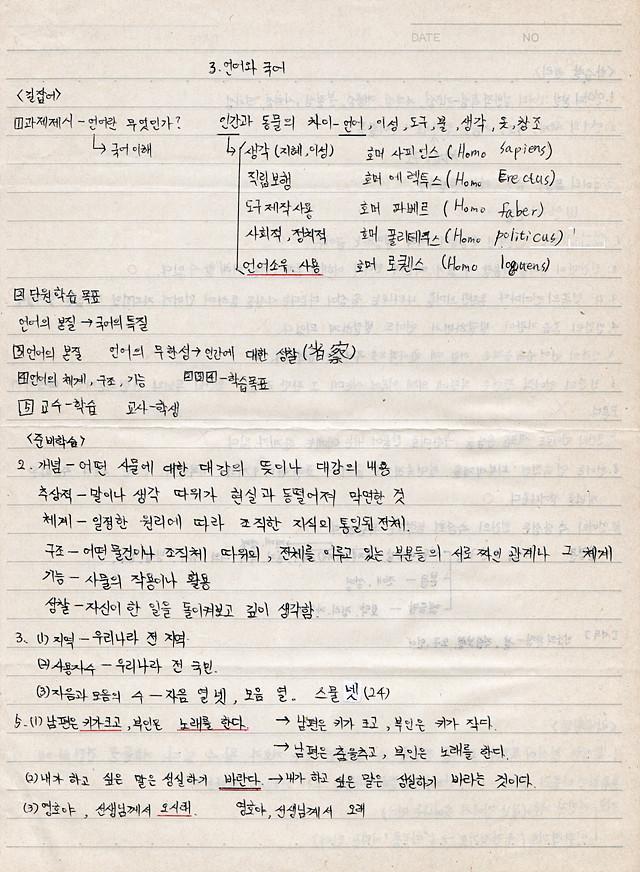 DATE NO
3. 언어와 국어
<길잡이>
1 과제제시 - 언어란 무엇인가? 인간과 동물의 차이 - 언어, 이성, 도구, 불, 생각, 옷, 창조
↳ 국어 이해 생각 (지혜, 이성) 호머 사피언스 (Homo sapiens)
직립보행 호머 에렉투스 (Homo Erectus)
도구 제작 사용 호머 파베르 (Homo faber)
사회적, 정치적 호머 폴리테쿠스 (Homo politicus)
언어소유, 사용 호머 로퀜스 (Homo loguens)
2 단원 학습 목표
언어의 본질 → 국어의 특질
3 언어의 본질 언어의 무한성 → 인간에 대한 생찰 (省察)
4 언어의 체계, 구조, 기능 2 3 4 - 학습목표
5 교수 - 학습 교사 - 학생
<준비학습>
2. 개념 - 어떤 사물에 대한 대강의 뜻이나 대강의 내용
추상적 - 말이나 생각 따위가 현실과 동떨어져 막연한 것
체계 - 일정한 원리에 따라 조직한 지식의 통일된 전체.
구조 - 어떤 물건이나 조직체 따위의, 전체를 이루고 있는 부분들의 서로 짜인 관계나 그 체계
기능 - 사물의 작용이나 활용
성찰 - 자신이 한 일을 돌이켜보고 깊이 생각함.
3. (1) 지역 - 우리나라 전 지역.
(2) 사용자수 - 우리나라 전 국민.
(3) 자음과 모음의 수 - 자음 열 넷, 모음 열. 스물 넷 (24)
5. (1) 남편은 키가 크고, 부인은 노래를 한다. → 남편은 키가 크고, 부인은 키가 작다.
→ 남편은 춤을추고, 부인은 노래를 한다.
(2) 내가 하고 싶은 말은 성실하기 바란다. → 내가 하고 싶은 말은 성실하기 바라는 것이다.
(3) 영호야, 선생님께서 오시래. 영호야, 선생님께서 오래